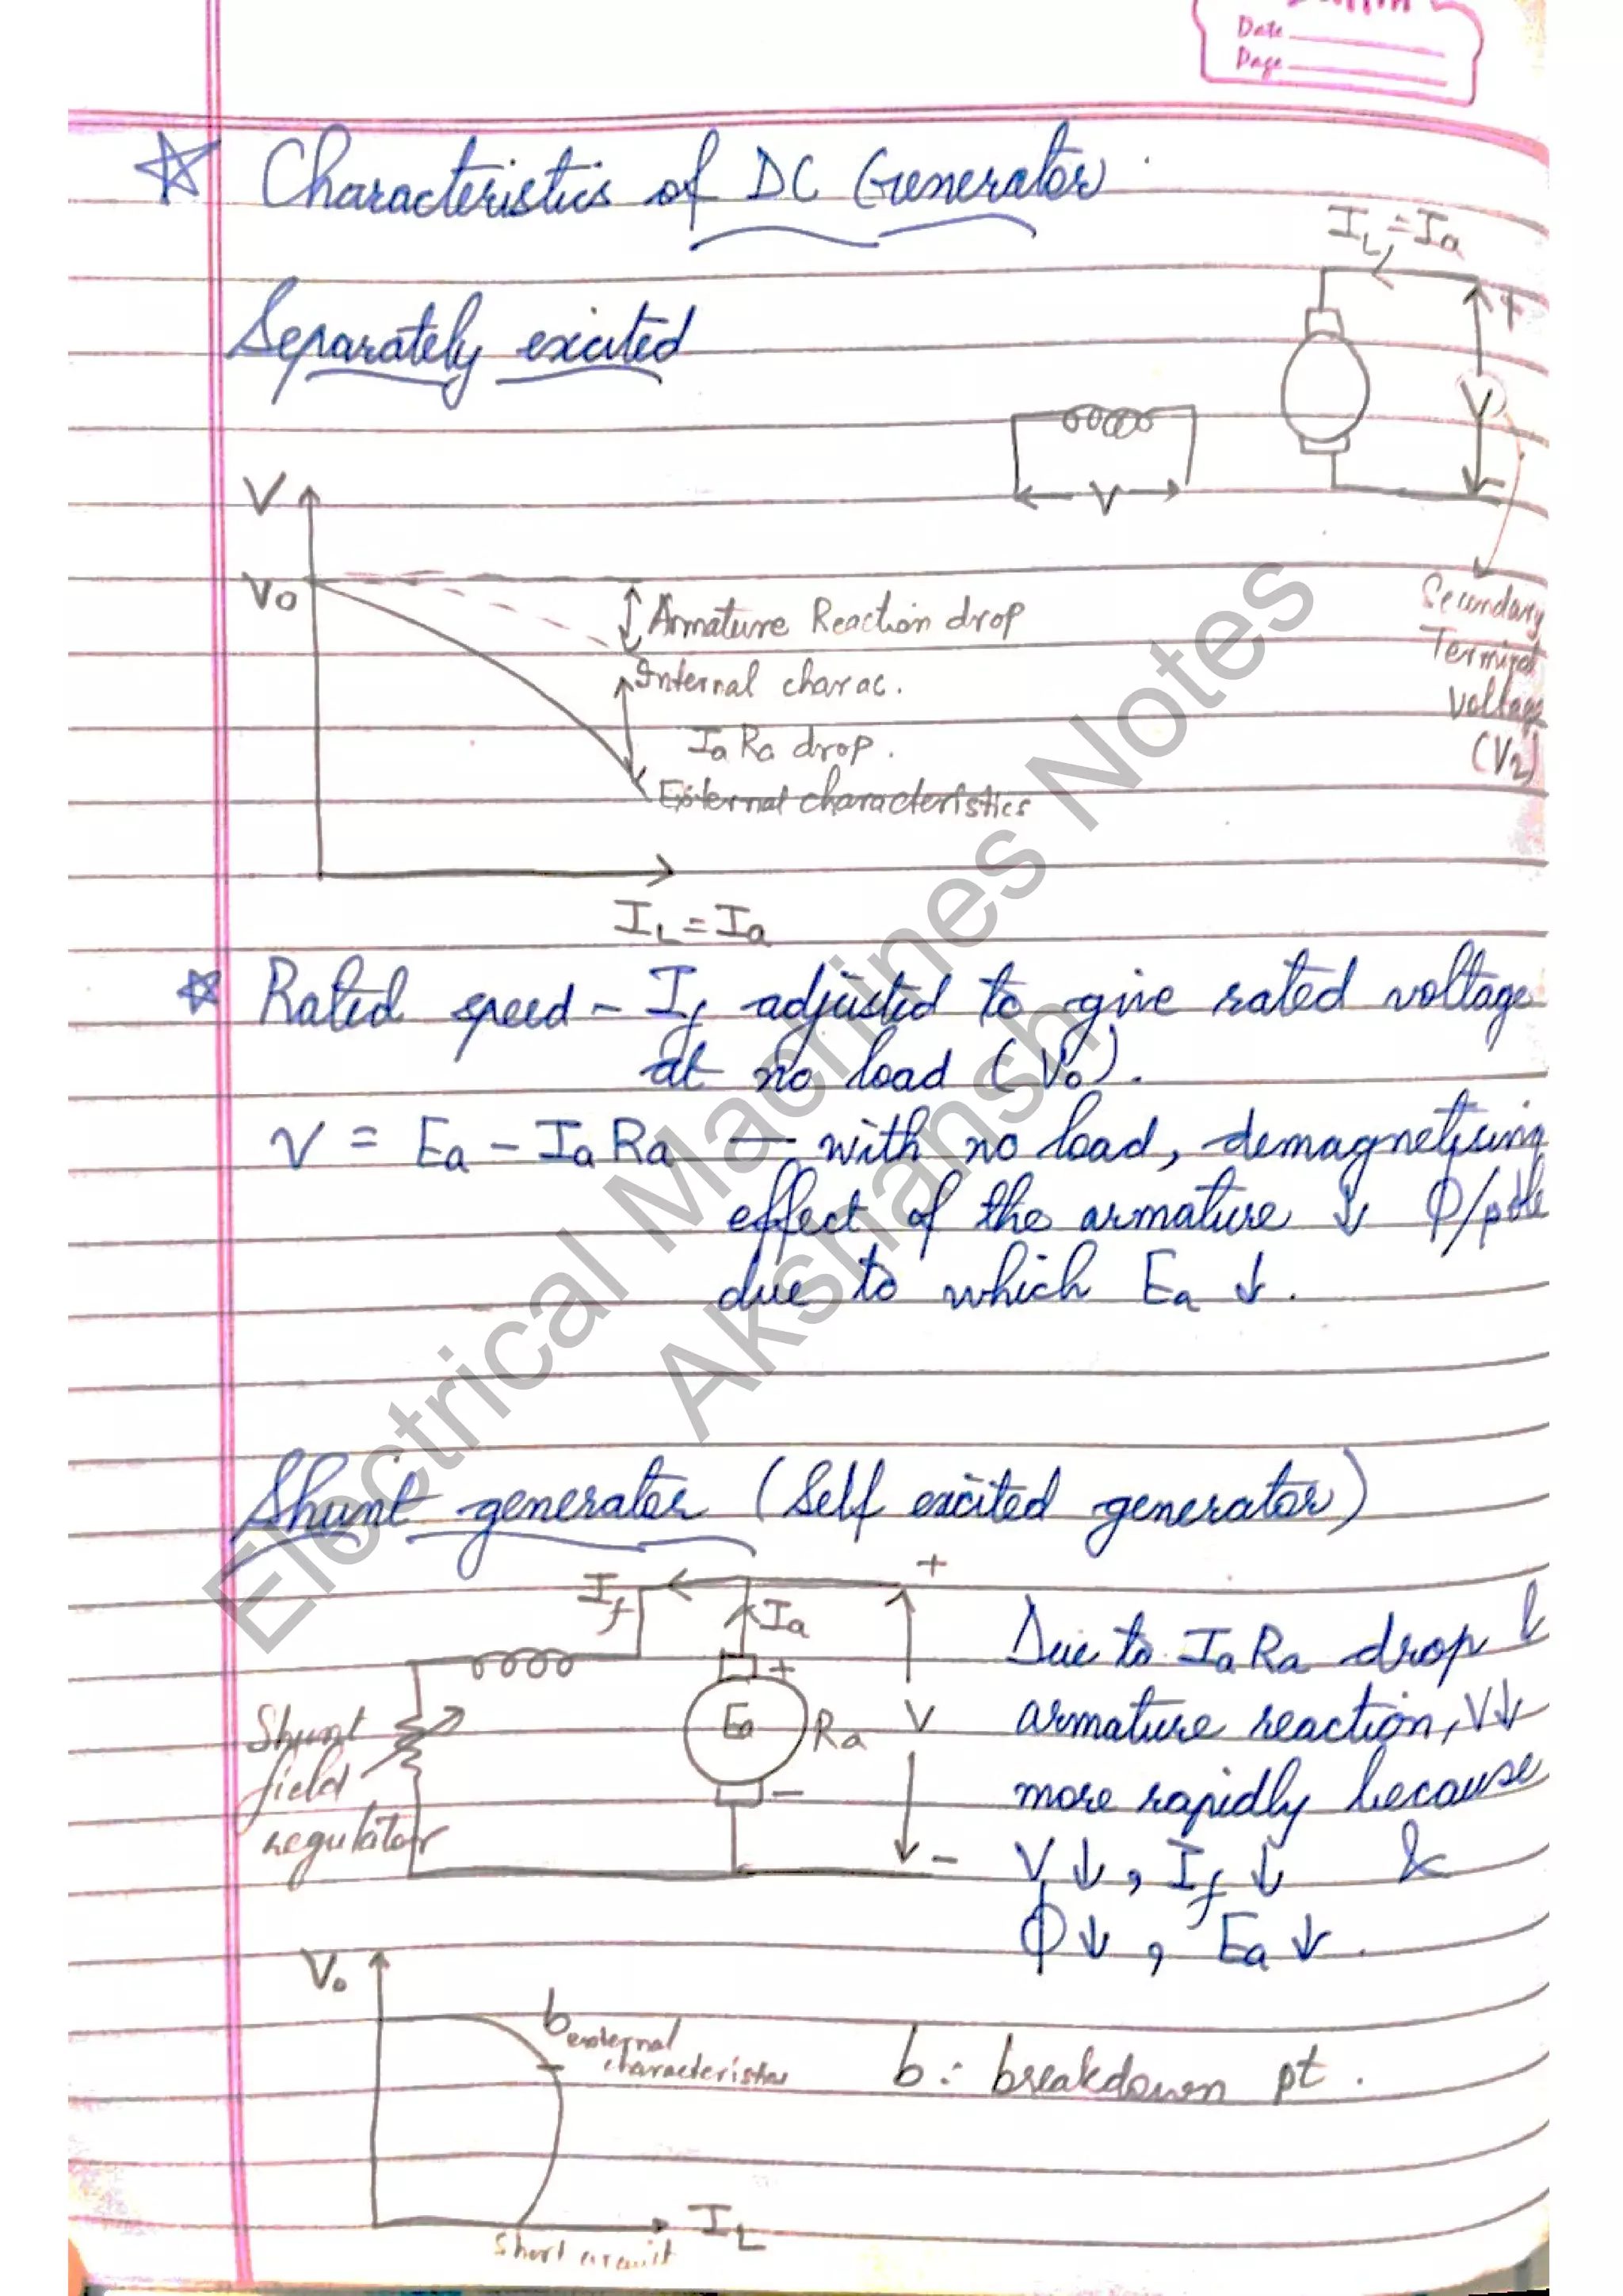 Date
Page
☆ Characteristics of DC Generator.
I_L = I_a
Separately excited
+
V
V
V
-
V₀
Armature Reaction drop
Internal charac.
I_a R_a drop.
External characteristics
Secondary
Terminal
Voltage
(V₂)
I_L = I_a
☆ Rated speed - I_f adjusted to give rated voltage
at no load (V₀).
V = E_a - I_a R_a — with no load, demagnetising
effect of the armature ↓ Φ/pole
due to which E_a ↓.
Shunt generator (Self excited generator)
+
I_f
I_a
+
E_a
R_a
V
-
-
Shunt
field
regulator
Due to I_a R_a drop &
armature reaction, V↓
more rapidly because
V↓, I_f ↓ &
Φ↓, E_a ↓.
V₀
b
external
characteristics
b: breakdown pt.
I_L
Short circuit
Electrical Machines Notes
Akshansh